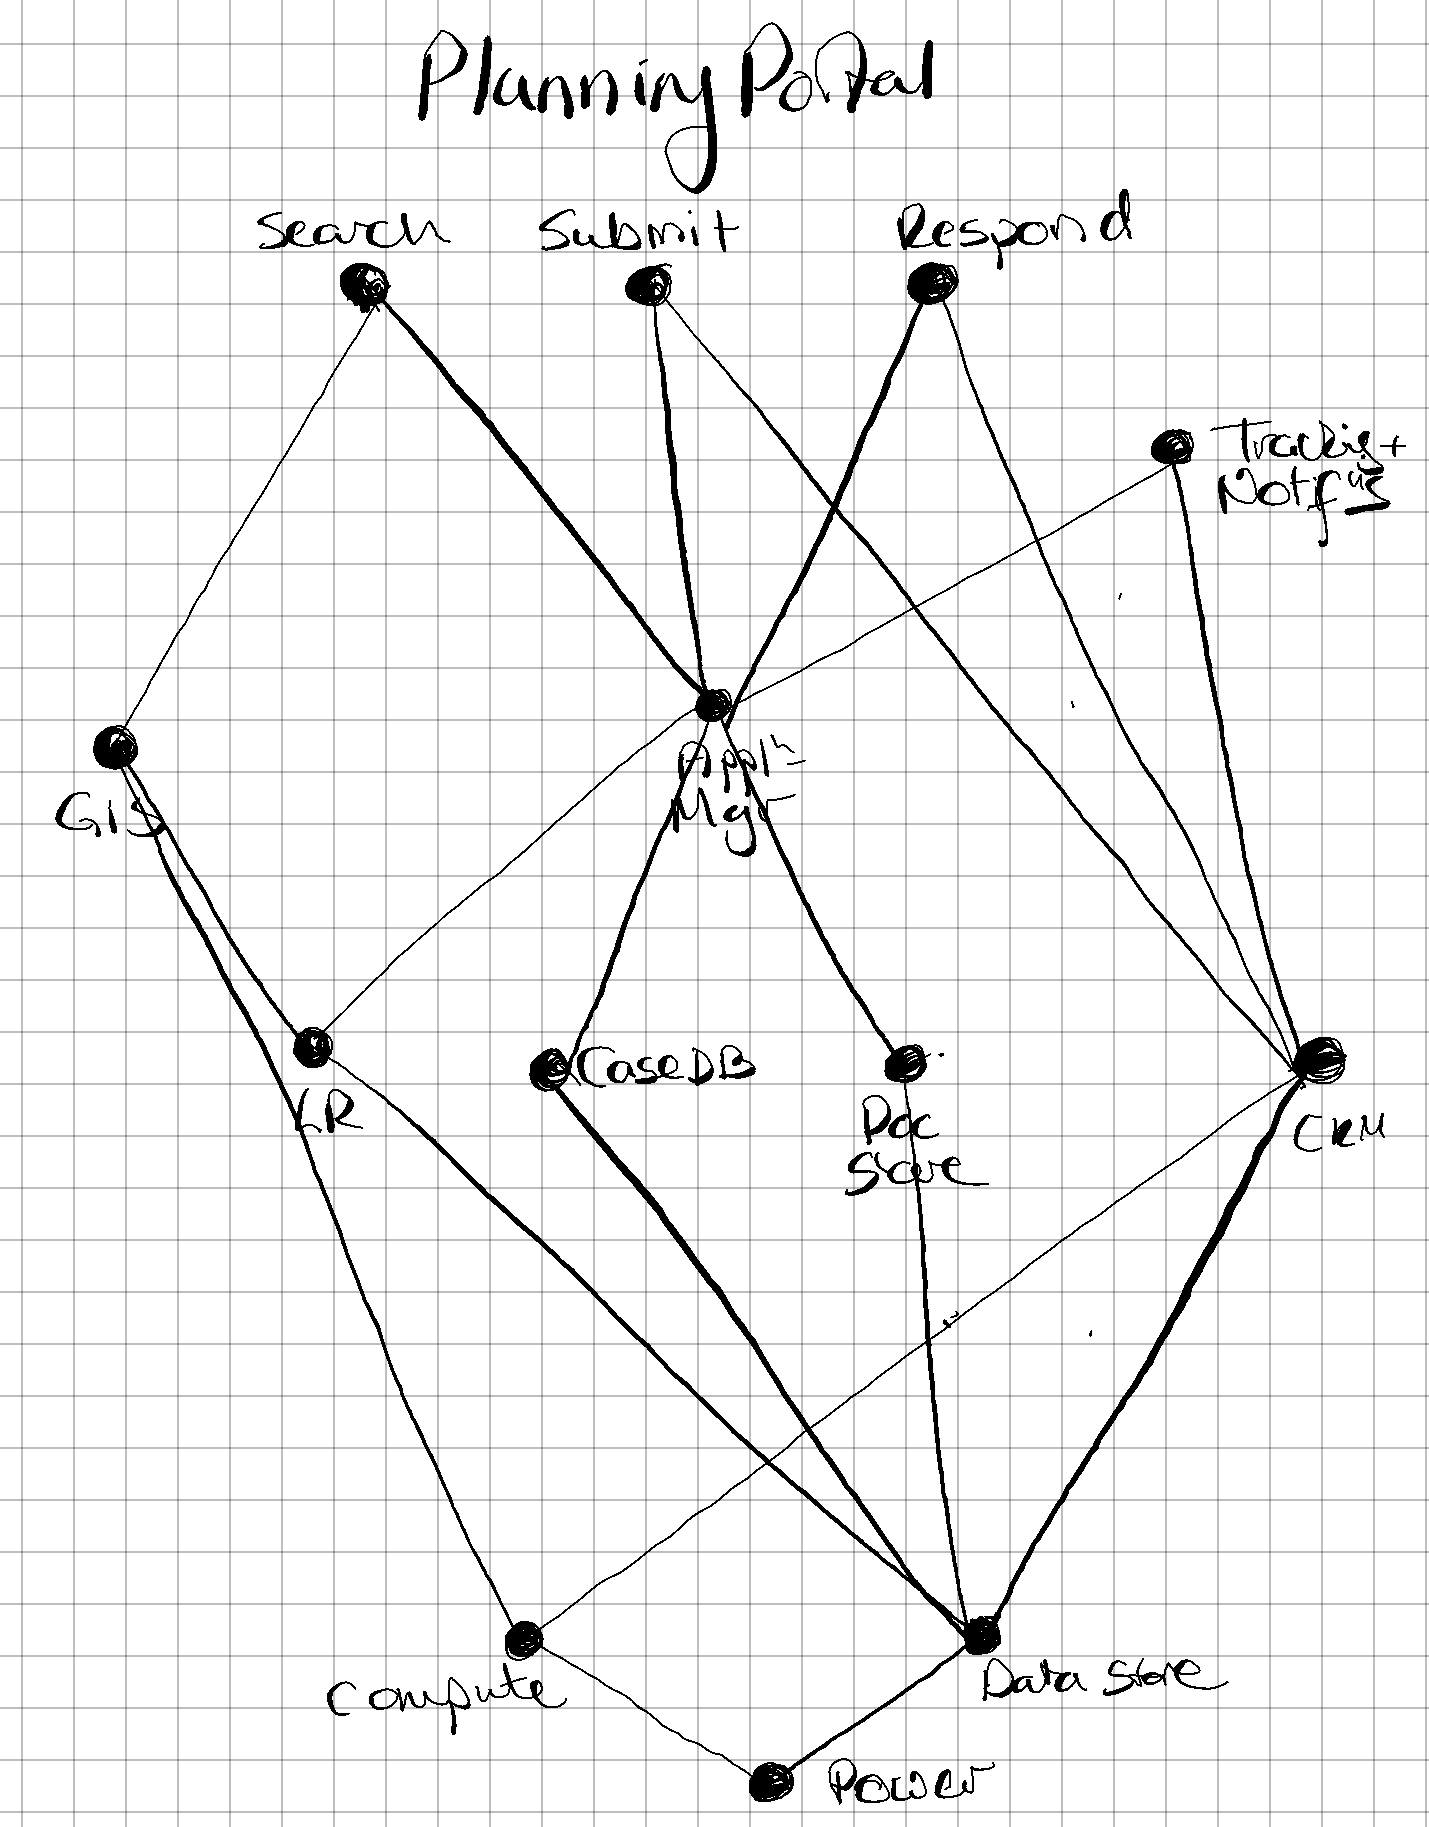 Planning Portal
Search Submit Respond
Tracking +
Notifns
Appln
Mgr
GIS
LR
CaseDB
Doc
Store
CRM
Compute
Data Store
Power